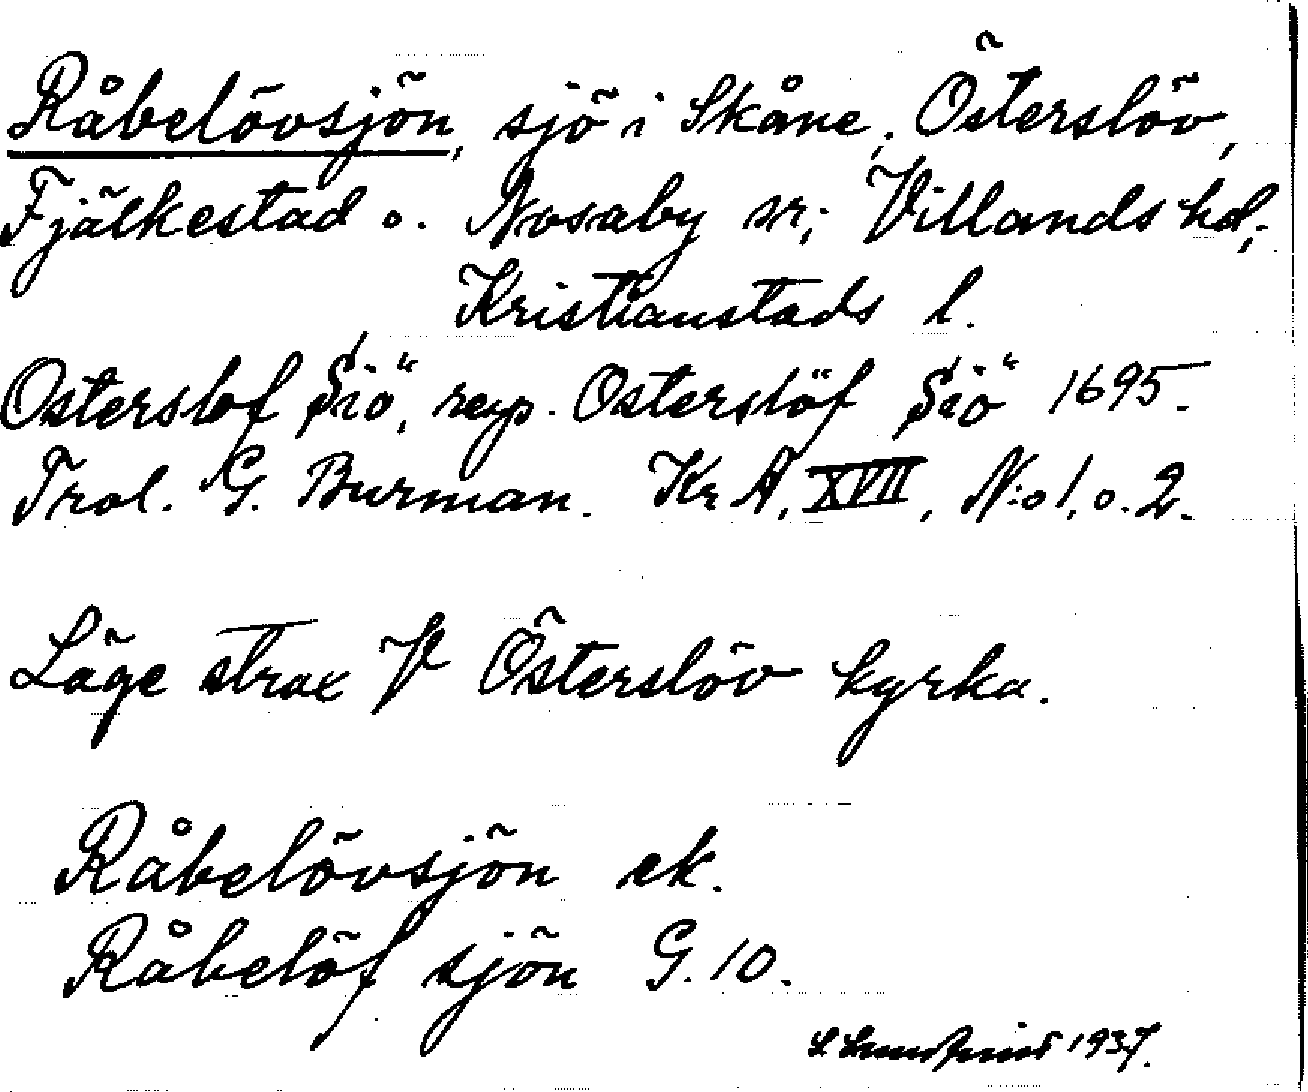 Råbelövsjön, sjö i Skåne; Österslöv,
Fjälkestad o. Nosaby snr; Villands hd;
Kristianstads l.
Osterslof Siö, resp. Osterslöf Siö 1695.
Trol. G. Burman. Kr A, XVII, N:o 1, o. 2.
Läge strax V Österslöv kyrka.
Råbelövsjön ek.
Råbelöf sjön G. 10.
1937.